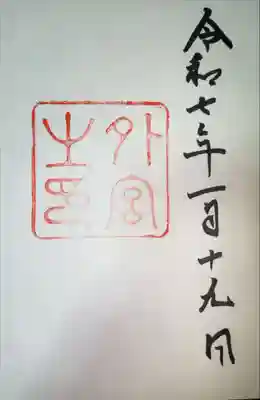 令和七年一月十九日
外宮之印